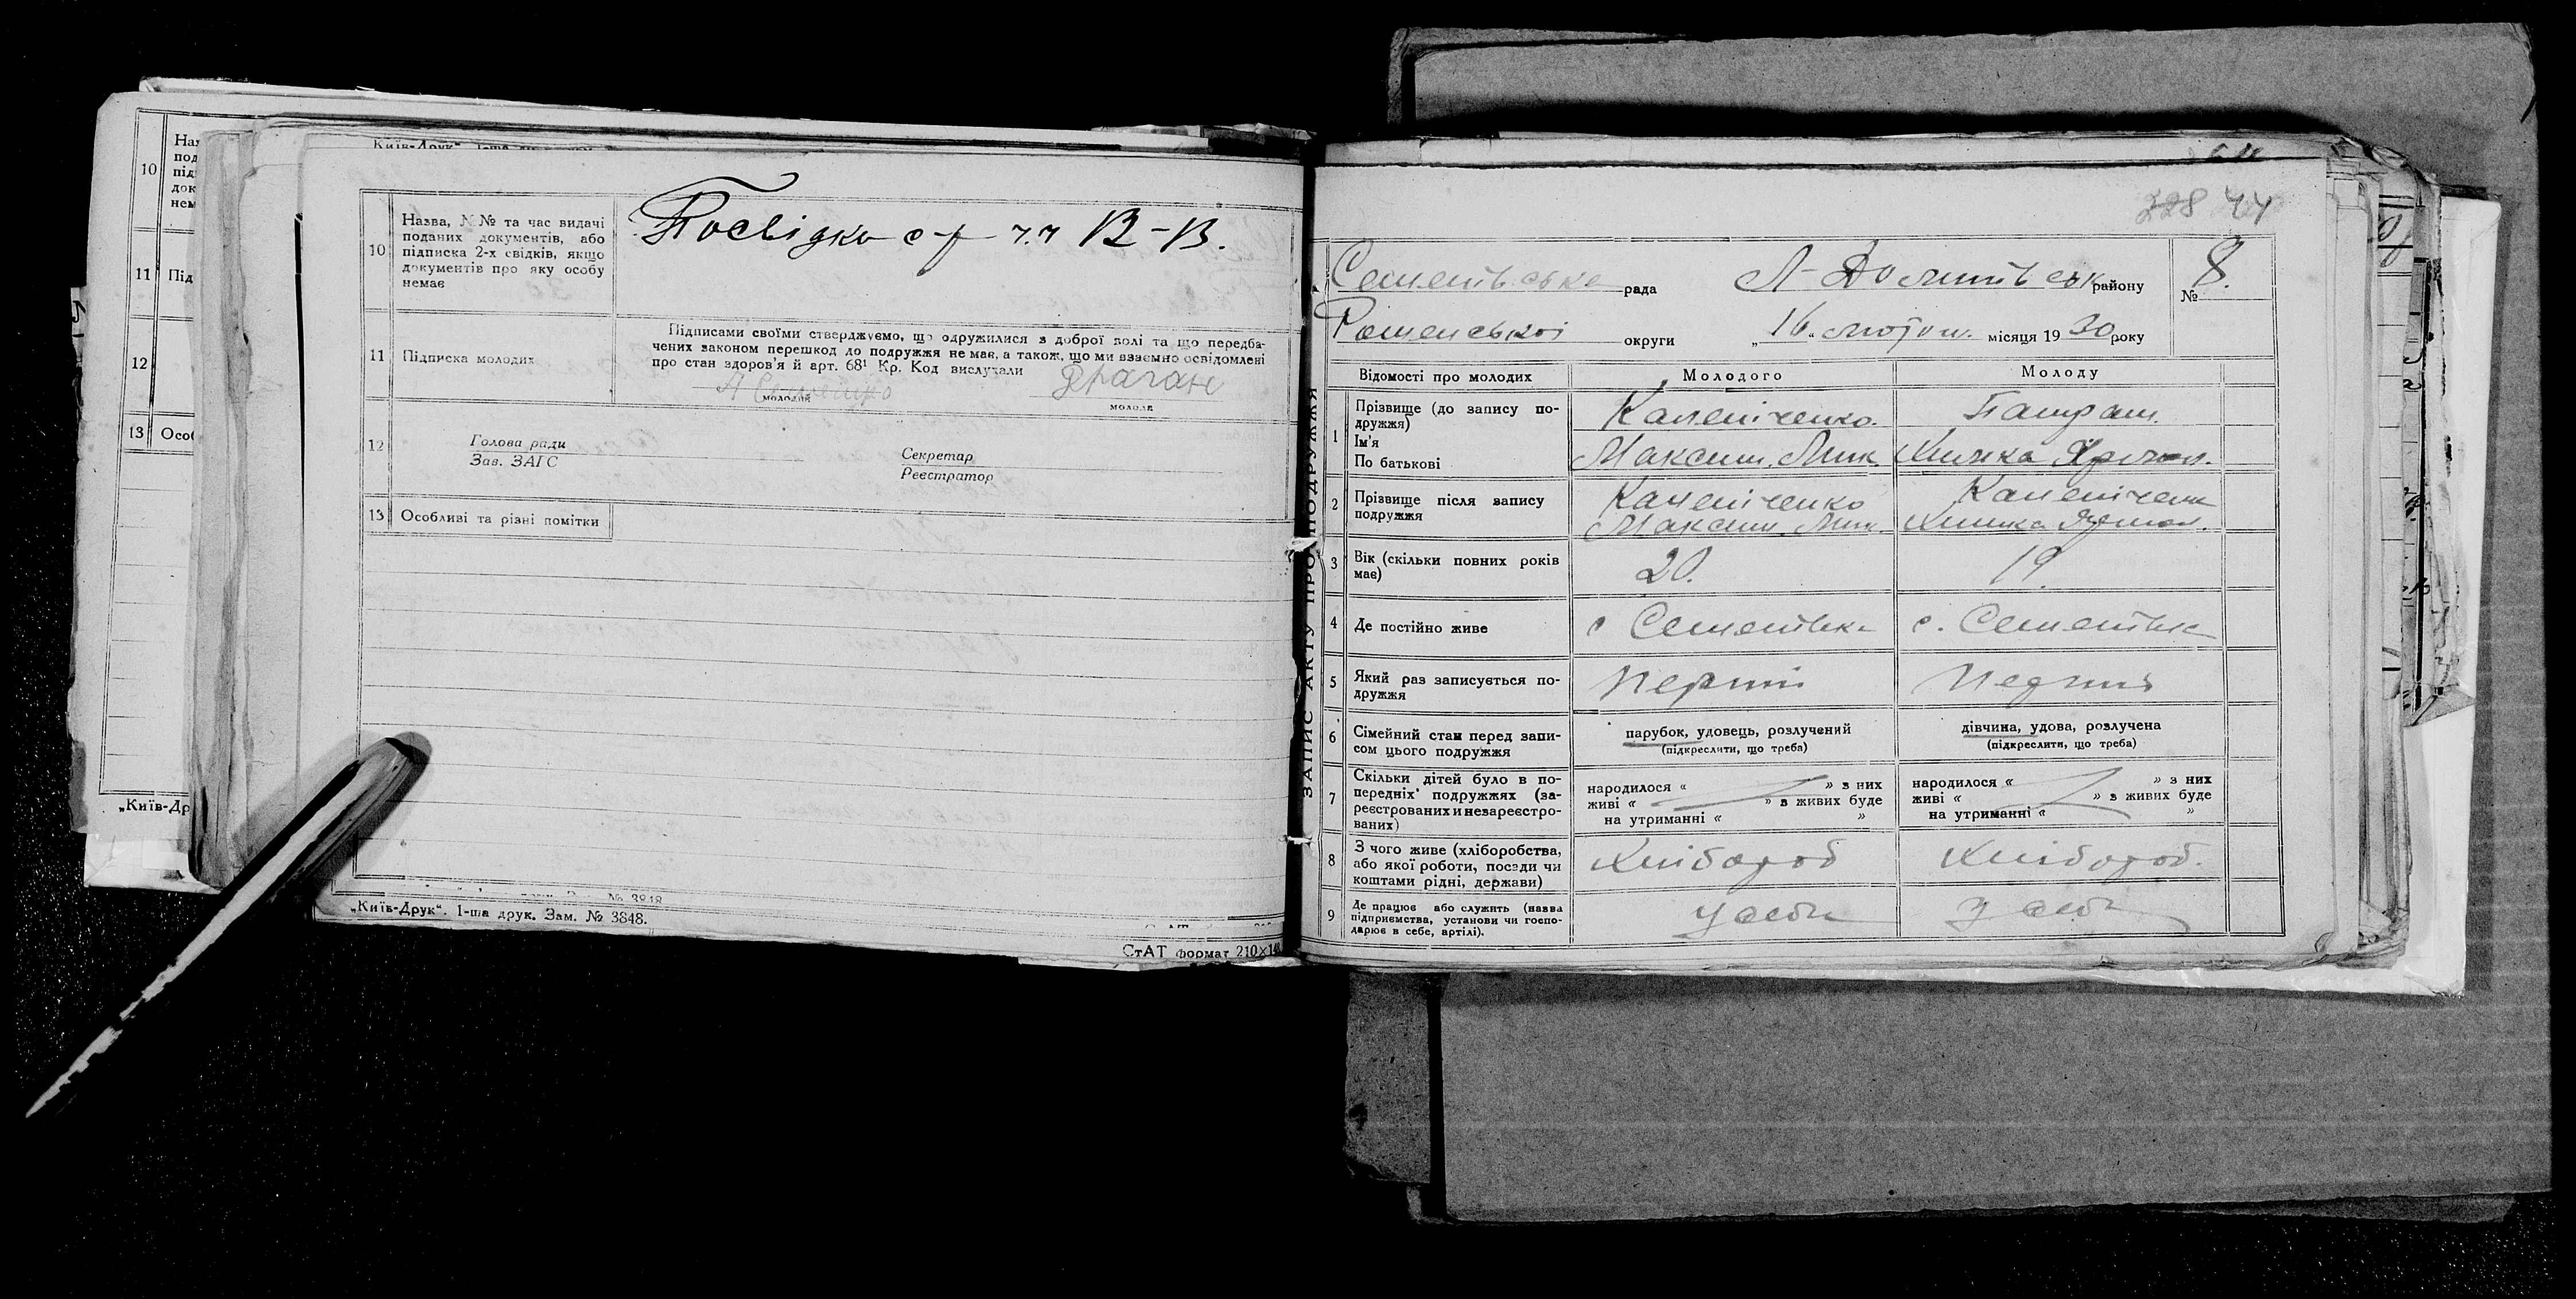 10
Наз
под
під
док
нем
11 Під
12
13 Особ
„Київ-Др
10
Назва, №№ та час видачі
поданих документів, або
підписка 2-х свідків, якщо
документів про яку особу
немає
Посвідка с-р ч.ч 12-13.
11 Підписка молодих
Підписами своїми стверджуємо, що одружилися з доброї волі та що передба-
чених законом перешкод до подружжя не має, а також, що ми взаємно освідомлені
про стан здоров'я й арт. 68¹ Кр. Код вислухали
Драган
молодий
молода
12
Голова ради
Зав. ЗАГС
Секретар
Реєстратор
13 Особливі та різні помітки
№ 3848
„Київ-Друк“. 1-ша друк. Зам. № 3848.
СтАТ формат 210×14
ЗАПИС АКТУ ПРО ПОДРУЖЖЯ
328 44
Семенівська рада
району
№ 8.
Роменської округи
„16“ лютого місяця 1930 року
Відомості про молодих
Молодого
Молоду
1
Прізвище (до запису по-
дружжя)
Ім'я
По батькові
Каленіченко.
Максим. Мик.
2
Прізвище після запису
подружжя
Каленіченко
Максим. Мик.
Каленіченк
3
Вік (скільки повних років
має)
20.
19.
4
Де постійно живе
с Семенівка
с. Семенівка
5
Який раз записується по-
дружжя
перший
перший
6
Сімейний стан перед запи-
сом цього подружжя
парубок, удовець, розлучений
(підкреслити, що треба)
дівчина, удова, розлучена
(підкреслити, що треба)
7
Скільки дітей було в по-
передніх подружжях (за-
реєстрованих и незареєстро-
ваних)
народилося « » з них
живі « » з живих буде
на утриманні « »
народилося « » з них
живі « » з живих буде
на утриманні « »
8
З чого живе (хліборобства,
або якої роботи, посади чи
коштами рідні, держави)
Хлібороб
Хлібороб.
9
Де працює або служить (назва
підприємства, установи чи госпо-
дарює в себе, артілі).
у себе
у себе